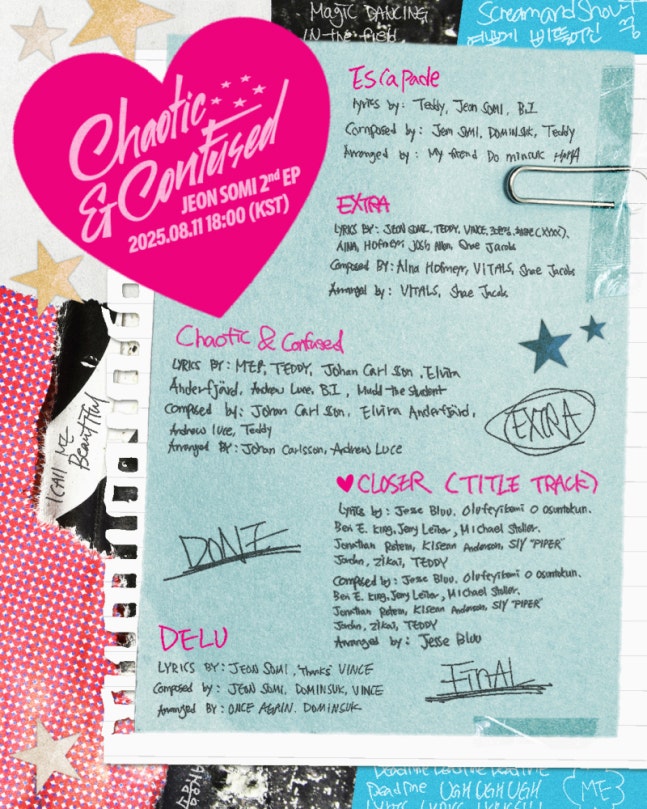 Magic DANCING
IN the
Scream and Shout
Chaotic
& Confused
JEON SOMI 2nd EP
2025.08.11 18:00 (KST)
Escapade
Lyrics by: Teddy, Jeon SOMI, B.I
Composed by: Jeon SOMI, DOMINSUK, Teddy
Arranged by: My friend Do minsuk HAHA
EXTRA
LYRICS BY: JEON SOMI, TEDDY, VINCE,
AINA, Hofmeyr, Josh Allen, Shae Jacobs
Composed BY: Aina Hofmeyr, VITALS, Shae Jacobs
Arranged by: VITALS, Shae Jacobs
Chaotic & Confused
LYRICS BY: MEP, TEDDY, Johan Carlsson, Elvira
Anderfjärd, Andrew Luce, B.I, Mudd the student
Composed by: Johan Carlsson, Elvira Anderfjärd,
Andrew luce, Teddy
Arranged BY: Johan Carlsson, Andrew Luce
EXTRA
I CAll ME
BeautifUl
♥CLOSER (TITLE TRACK)
Lyrics by: Jesse Bluu, Olufeyibomi O Osuntokun.
Ben E. King, Jerry Leiber, Michael Stoller.
Jonathan Rotem, Kisean Anderson, SLY "PIPER"
Jordan, Zikai, TEDDY
Composed by: Jesse Bluu, Olufeyibomi O Osuntokun.
Ben E. King, Jerry Leiber, Michael Stoller.
Jonathan Rotem, Kisean Anderson, SLY "PIPER"
Jordan, Zikai, TEDDY
Arranged by: Jesse Bluu
DONE
DELU
LYRICS BY: JEON SOMI, "thanks" VINCE
Composed by: JEON SOMI, DOMINSUK, VINCE
Arranged BY: ONCE AGAIN. DOMINSUK
FinAL
Deadline Deadline Deadline
Deadline UGH UGH UGH
(ME)